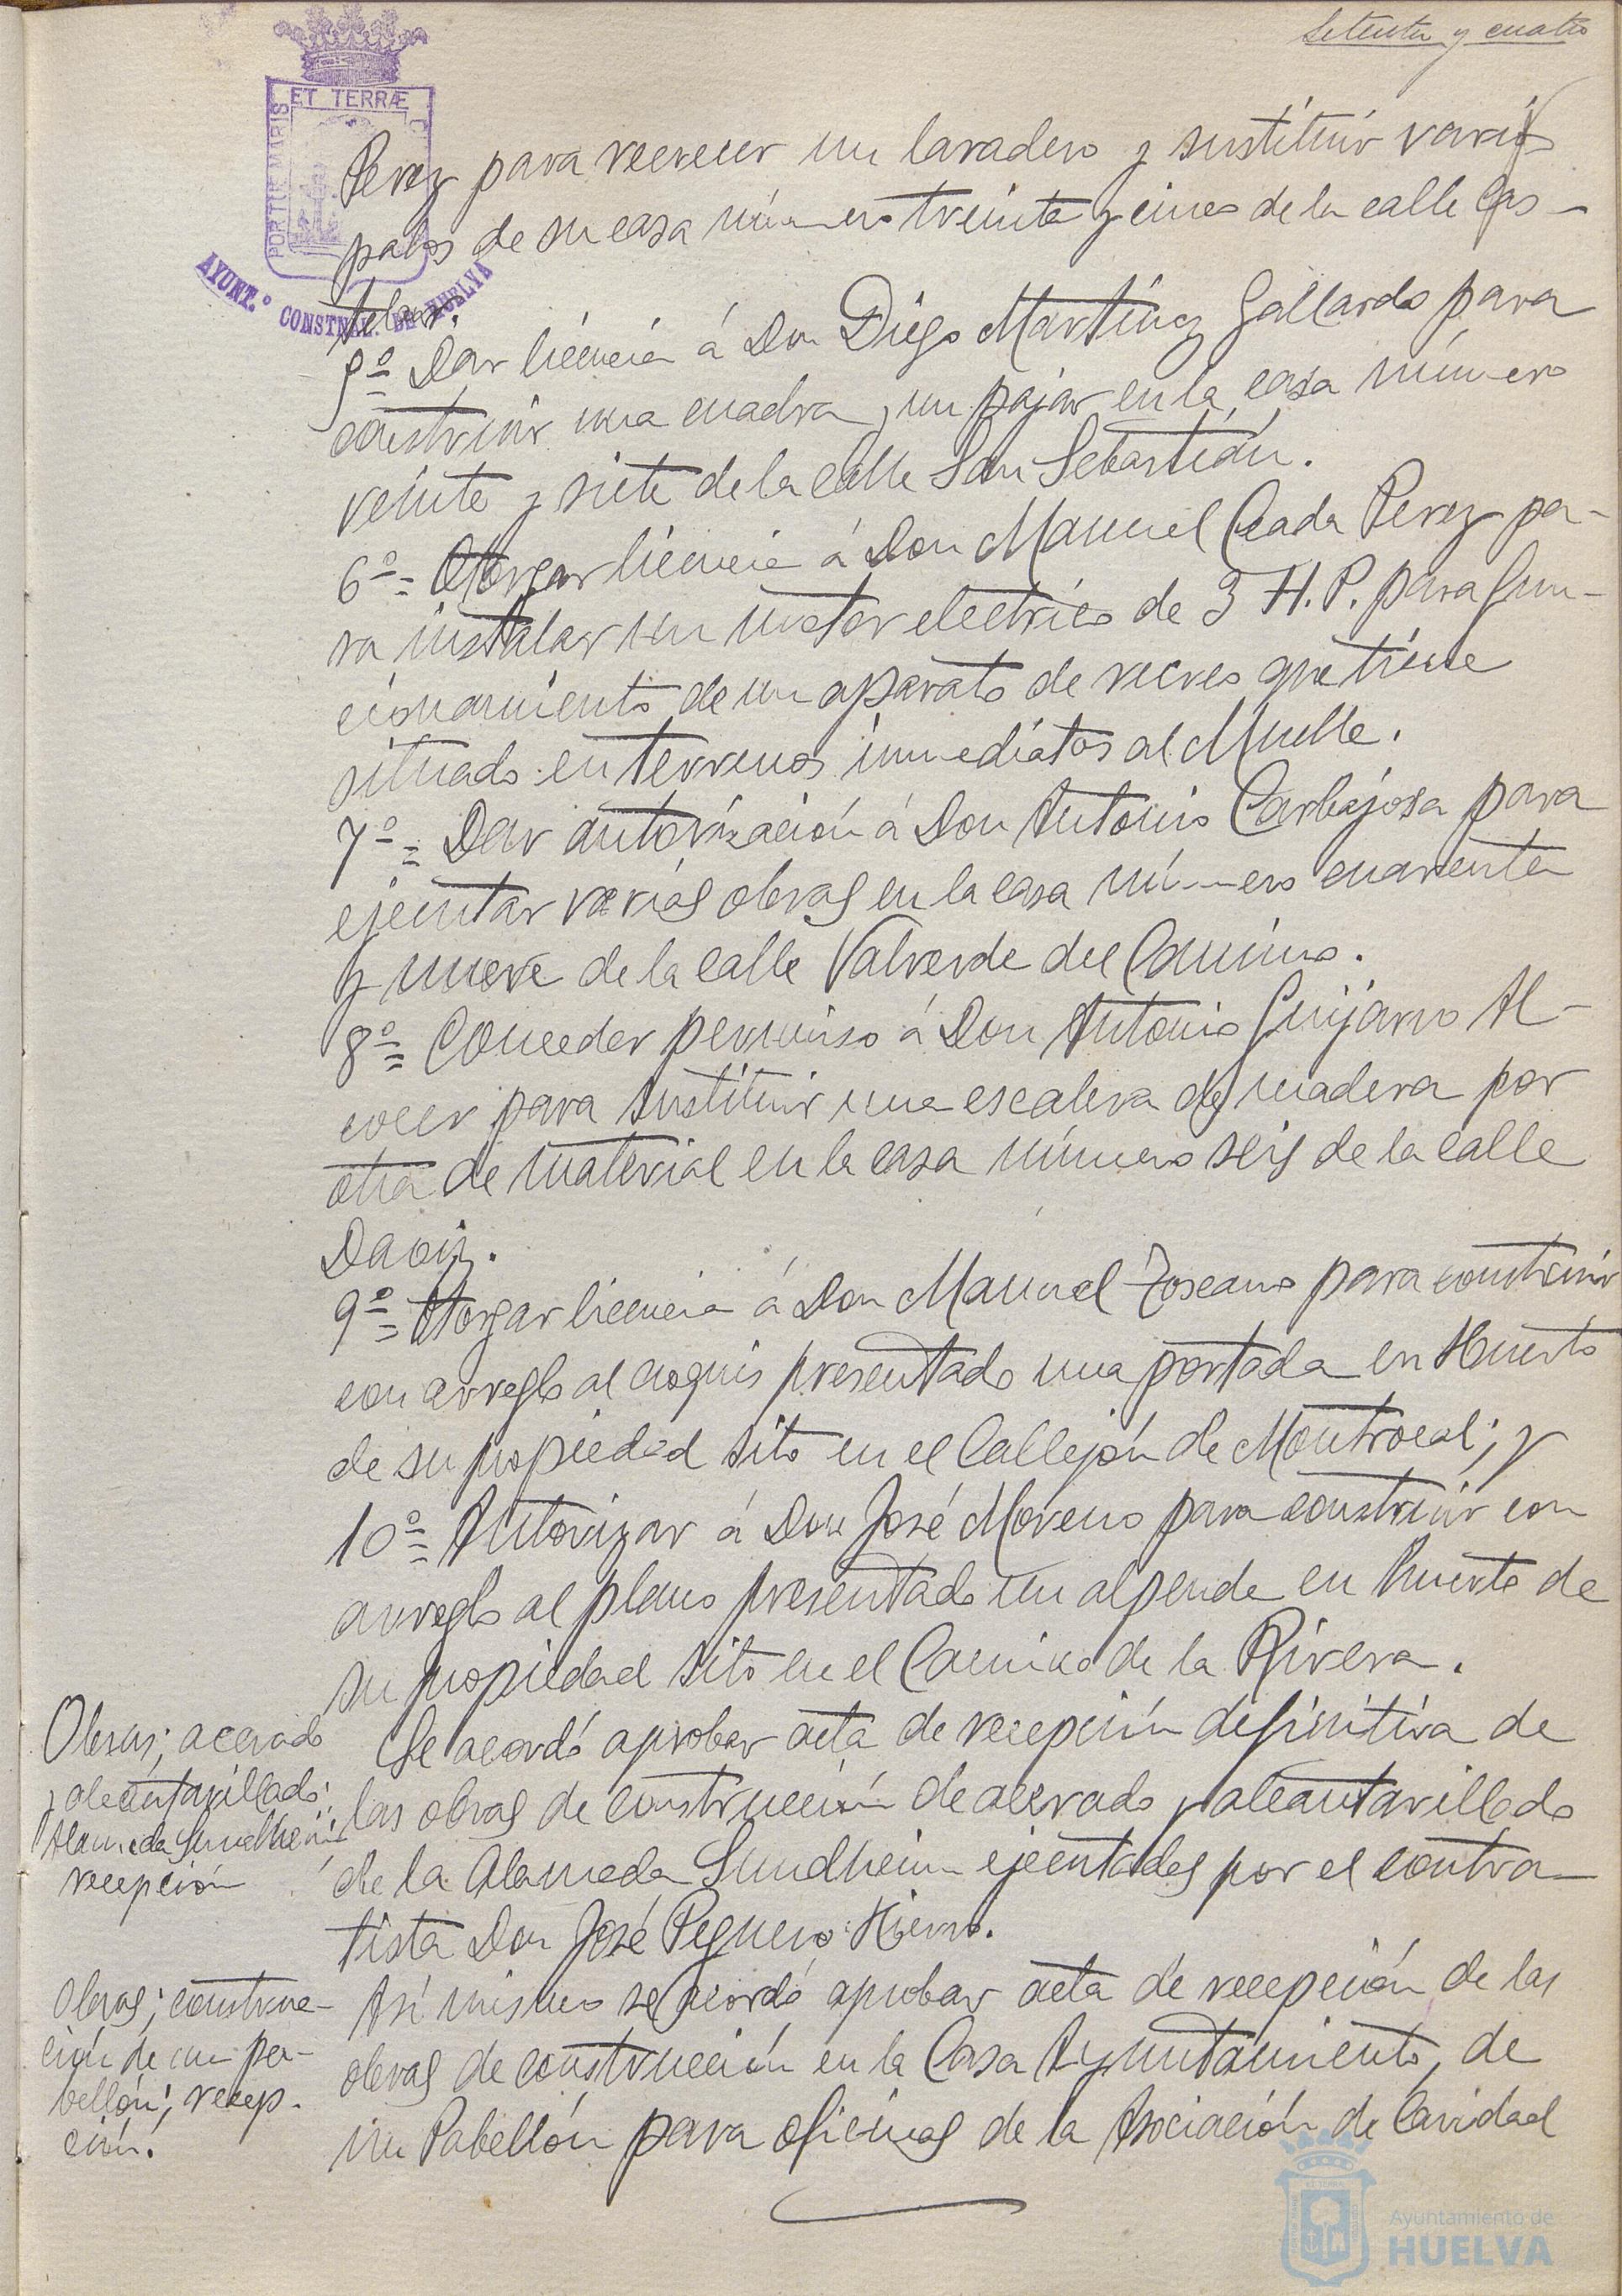 Setenta y cuatro
ET TERRÆ
PORTUE MARIS
AYUNT.º CONSTNAL. DE HUELVA
Perez para recrecer un lavadero y sustituir varios
palos de su casa número treinta y cinco de la calle Cas-
telar.
5º Dar licencia á Don Diego Martínez Gallardo para
construir una cuadra y un pajar en la casa número
veinte y siete de la calle San Sebastián.
6º= Otorgar licencia á Don Manuel Ceada Perez pa-
ra instalar un motor electrico de 3 H.P. para fun-
cionamiento de un aparato de recreo que tiene
situado en terrenos inmediatos al Muelle.
7º= Dar autorización á Don Antonio Carbajosa para
ejecutar varias obras en la casa número cuarenta
y nueve de la calle Valverde del Camino.
8º= Conceder permiso á Don Antonio Guijarro Al-
cocer para sustituir una escalera de madera por
otra de material en la casa número seis de la calle
Daoiz.
9º= Otorgar licencia á Don Manuel Toscano para construir
con arreglo al croquis presentado una portada en Huerto
de su propiedad sito en el Callejón de Montrocal; y
10º= Autorizar á Don José Moreno para construir con
arreglo al plano presentado un alpende en huerto de
su propiedad sito en el Camino de la Rivera.
Obras; acerado
y alcantarillado;
Alameda Sundheim;
recepción
Se acordó aprobar acta de recepción definitiva de
las obras de construcción de acerado y alcantarillado
de la Alameda Sundheim ejecutadas por el contra-
tista Don José Peguero Hierro.
Obras; construc-
ción de un pa-
bellón; recep-
ción.
Así mismo se acordó aprobar acta de recepción de las
obras de construcción en la Casa Ayuntamiento, de
un Pabellón para oficinas de la Asociación de Caridad
Ayuntamiento de
HUELVA